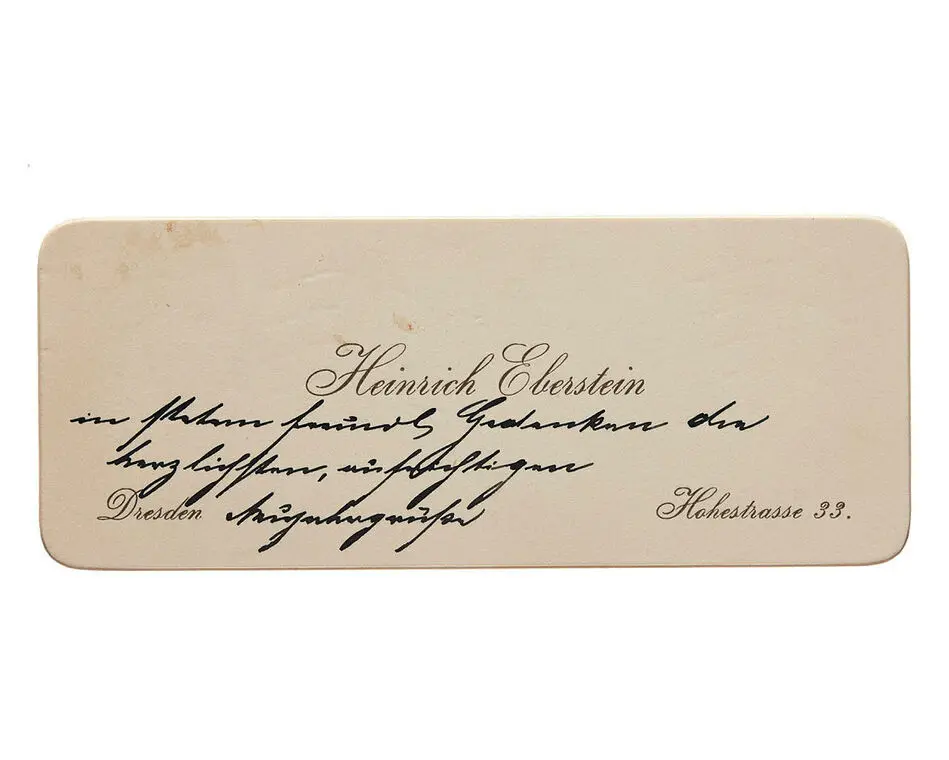 Heinrich Eberstein
in stetem freundl. Gedenken die
herzlichsten, aufrichtigen
Dresden Neujahrsgrüße Hohestrasse 33.